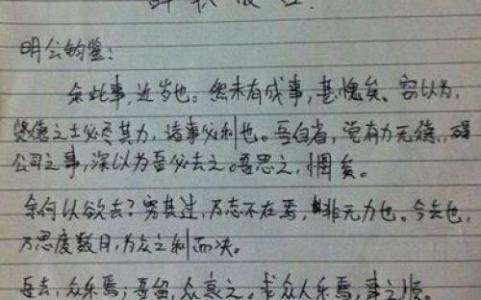 辞职报告
明公钧鉴：
余此事，近岁也。然未有成事，甚愧矣。窃以为，
贤德之士必尽其力，诸事必利也。吾自省，觉有力无德，碍
公司之事，深以为吾必去之。吾思之，惘矣。
余何以欲去？穷其过，乃志不在焉，非无力也。今去也，
乃思度数月，为众之利而决。
吾去，众乐焉；吾留，众哀之。求众人乐焉，事之顺